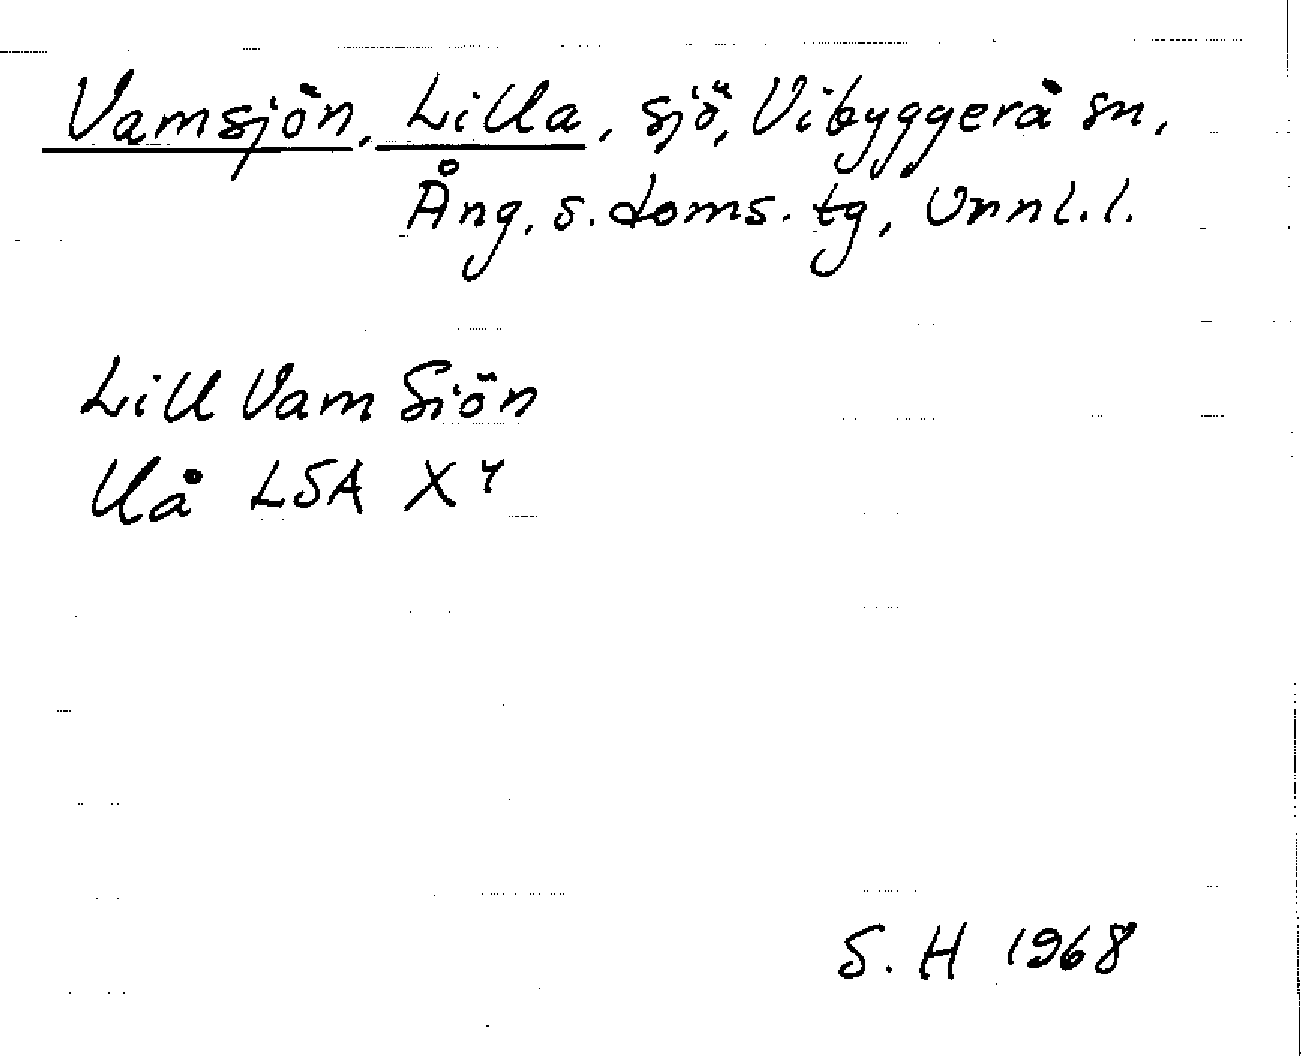 Vamsjön, Lilla, sjö, Vibyggerå sn,
Ång. s. doms. tg, Vnnl. l.
Lill Vam Siön
Uå LSA X 4
S. H 1968